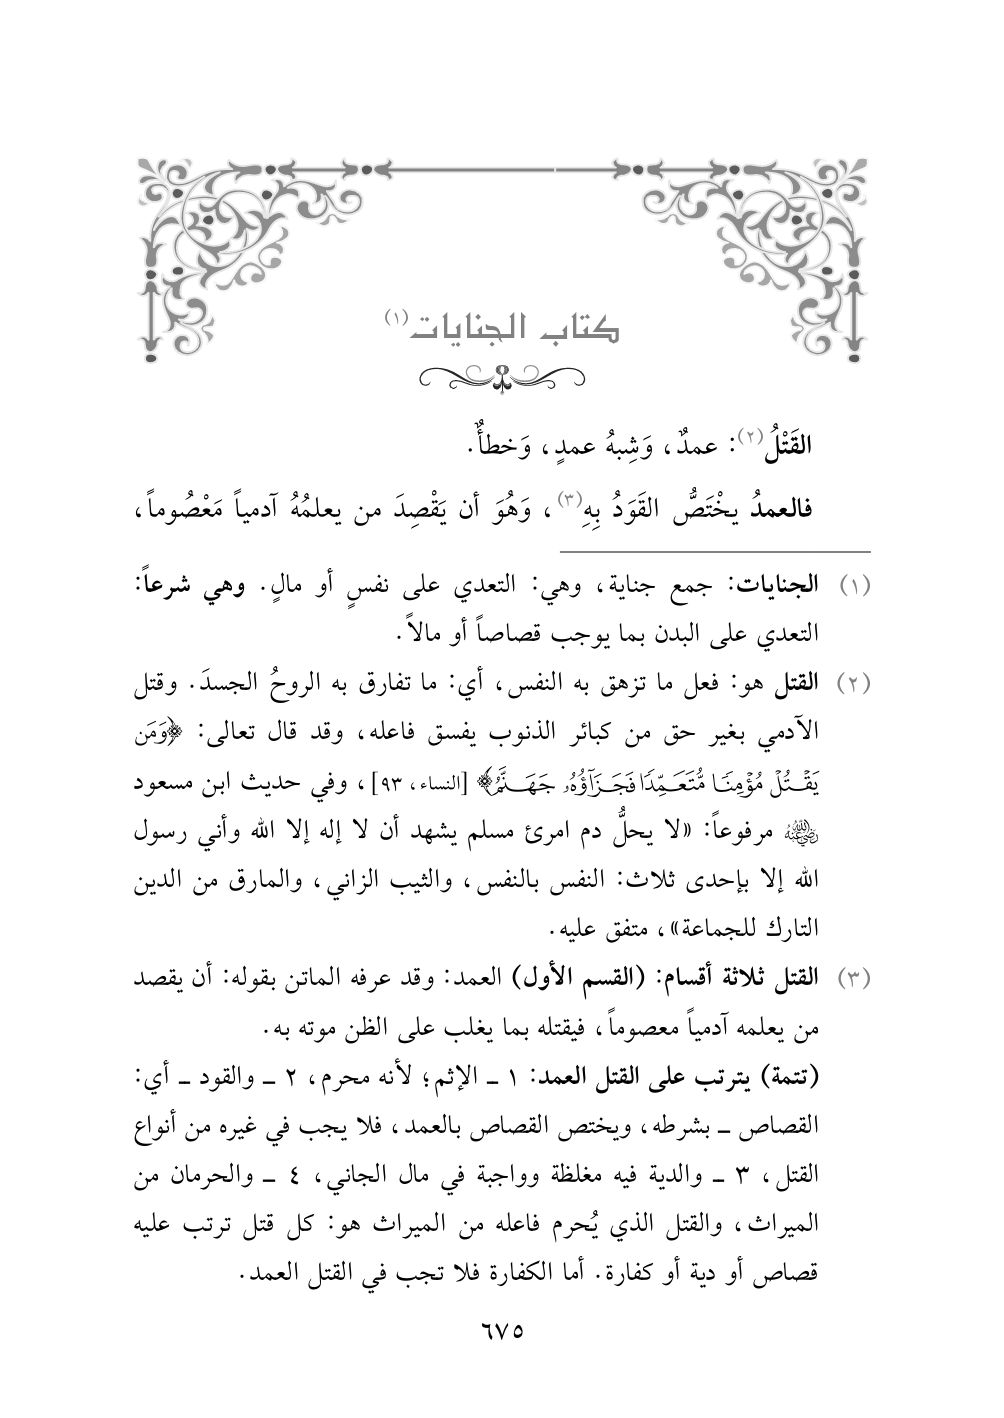 كتاب الجنايات(١)
القَتْلُ(٢): عمدٌ، وَشِبهُ عمدٍ، وَخطأٌ.
فالعمدُ يخْتَصُّ القَوَدُ بِهِ(٣)، وَهُوَ أن يَقْصِدَ من يعلمُهُ آدمياً مَعْصُوماً،
(١) الجنايات: جمع جناية، وهي: التعدي على نفسٍ أو مالٍ. وهي شرعاً:
التعدي على البدن بما يوجب قصاصاً أو مالاً.
(٢) القتل هو: فعل ما تزهق به النفس، أي: ما تفارق به الروحُ الجسدَ. وقتل
الآدمي بغير حق من كبائر الذنوب يفسق فاعله، وقد قال تعالى: ﴿وَمَن
يَقْتُلْ مُؤْمِنًا مُّتَعَمِّدًا فَجَزَآؤُهُۥ جَهَنَّمُ﴾ [النساء، ٩٣]، وفي حديث ابن مسعود
رضي الله عنه مرفوعاً: «لا يحلُّ دم امرئ مسلم يشهد أن لا إله إلا الله وأني رسول
الله إلا بإحدى ثلاث: النفس بالنفس، والثيب الزاني، والمارق من الدين
التارك للجماعة»، متفق عليه.
(٣) القتل ثلاثة أقسام: (القسم الأول) العمد: وقد عرفه الماتن بقوله: أن يقصد
من يعلمه آدمياً معصوماً، فيقتله بما يغلب على الظن موته به.
(تتمة) يترتب على القتل العمد: ١ ـ الإثم؛ لأنه محرم، ٢ ـ والقود ـ أي:
القصاص ـ بشرطه، ويختص القصاص بالعمد، فلا يجب في غيره من أنواع
القتل، ٣ ـ والدية فيه مغلظة وواجبة في مال الجاني، ٤ ـ والحرمان من
الميراث، والقتل الذي يُحرم فاعله من الميراث هو: كل قتل ترتب عليه
قصاص أو دية أو كفارة. أما الكفارة فلا تجب في القتل العمد.
٦٧٥